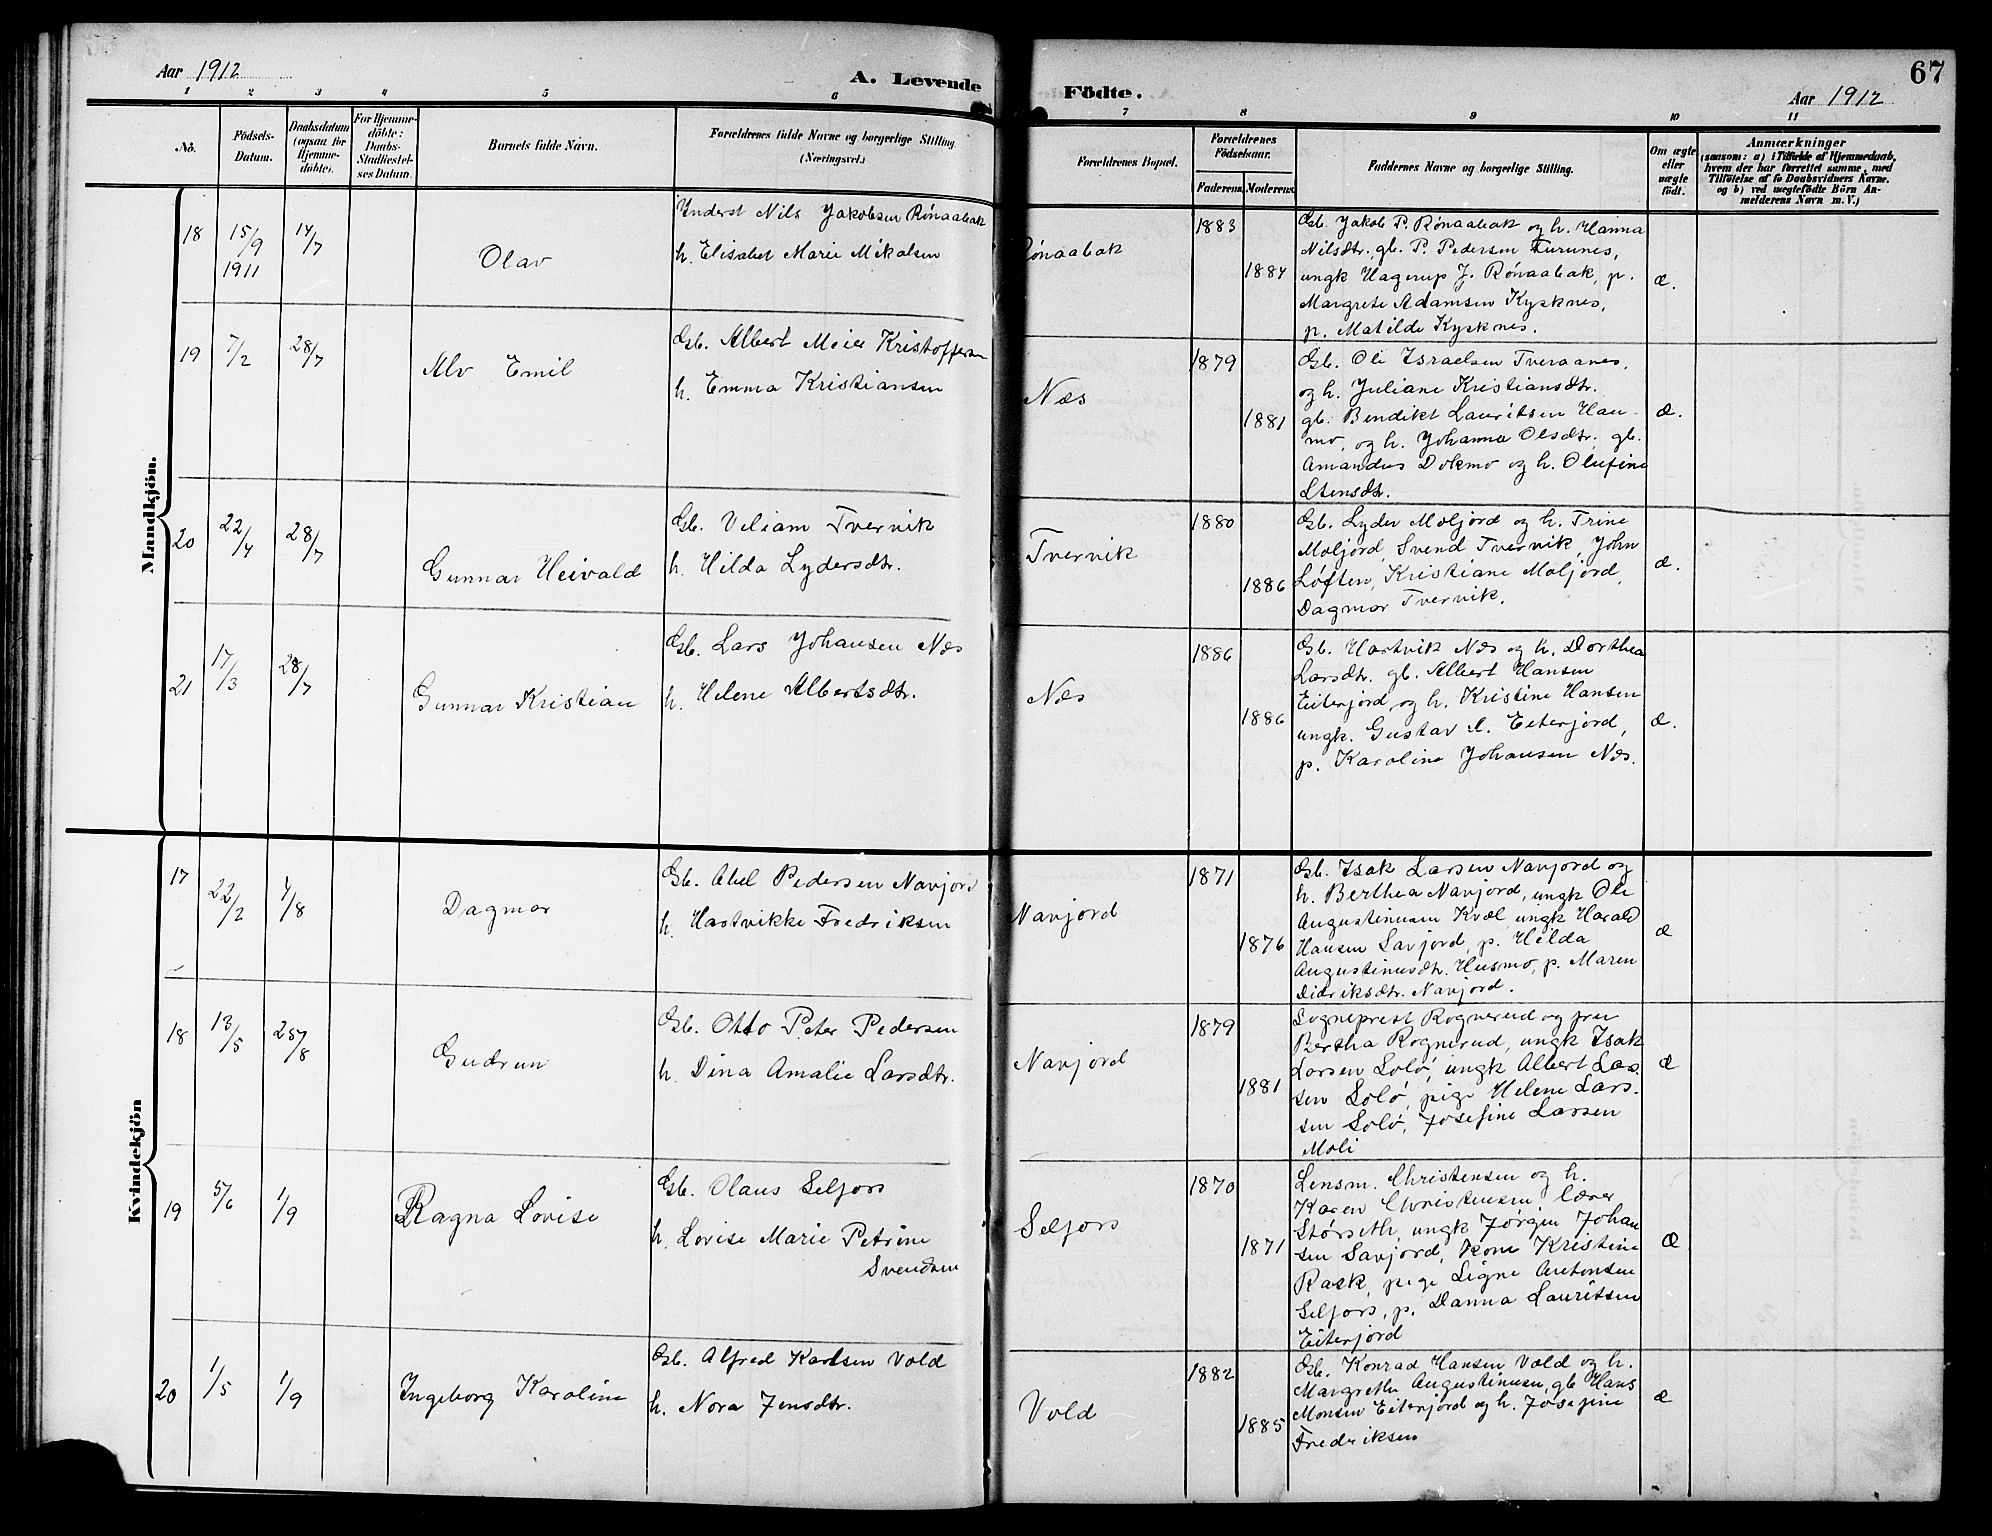 Aar 1912
A. Levende
Födte.
67
Aar 1912
1 2 3 4 5 6 7 8 9 10 11
No.
Födsels-
Datum.
Daabsdatum
(ogsaa for
Hjemme-
döbte).
For Hjemme-
döbte:
Daabs-
Stadfæstel-
ses Datum.
Barnets fulde Navn.
Forældrenes fulde Navne og borgerlige Stilling.
(Næringsvei.)
Forældrenes Bopæl.
Forældrenes
Födselsaar.
Faderens.
Moderens.
Faddernes Navne og borgerlige Stilling.
Om ægte
eller
uægte
födt.
Anmærkninger
(saasom: a) i Tilfælde af Hjemmedaab,
hvem der har forrettet samme, med
Tilföielse af to Daabsvidners Navne.
og b) ved uægtefödte Börn An-
melderens Navn m. V.)
Mandkjön.
18
15/9
1911
14/7
Olav
Inderst Nils Jakobsen Rónaabak
h. Elisabet Marie Mikalsen
Rónaabak
1883
1884
Gb. Jakob P. Rónaabak og h. Hanna
Nilsdtr. gb. P. Pedersen Furunes,
ungk Hagerup J. Rónaabak, p.
Margrete Adamsen Kysknes,
p. Matilde Kysknes.
æ.
19
7/2
28/7
Alv Emil
Gb. Albert Meier Kristoffersen
h. Emma Kristiansen
Næs
1879
1881
Gb. Ole Israelsen Tveraanes,
og h. Juliane Kristiansdtr.
gb. Bendikt Lauritsen Hau-
mo, og h. Johanna Olsdtr. gb.
Amandus Dokmo og h. Olufine
Stensdtr.
æ.
20
22/4
28/7
Gunnar Heivald
Gb. Viliam Tvervik
h. Hilda Lydersdtr.
Tvervik
1880
1886
Gb. Lyder Moljord og h. Trine
Moljord, Svend Tvervik, John
Løften, Kristiane Moljord,
Dagmar Tvervik.
æ.
21
17/3
28/7
Gunnar Kristian
Gb. Lars Johansen Næs
h. Helene Albertsdtr.
Næs
1886
1886
Gb. Hartvik Næs og h. Dorthea
Larsdtr. gb. Albert Hansen
Eiterjord, og h. Kristine Hansen
ungk. Gustav A. Eiterjord,
p. Karoline Johansen Næs.
æ.
Kvindekjön
17
22/2
4/8
Dagmar
Gb. Abel Pedersen Navjord
h. Hartvikke Fredriksen
Navjord
1871
1876
Gb. Isak Larsen Navjord og
h. Berthea Navjord, ungk Ole
Augustinusen Kvæl, ungk Harald
Hansen Savjord, p. Hilda
Augustinusdtr. Husmo, p. Maren
Didriksdtr. Navjord.
æ
18
13/5
25/8
Gudrun
Gb. Otto Peter Pedersen
h. Dina Amalie Larsdtr.
Navjord
1879
1881
Sogneprest Rognerud og fru
Bertha Rognerud, ungk Isak
Larsen Solø, ungk Albert Lar-
sen Solø, pige Helene Lar-
sen Solø, Josefine Larsen
Moli
æ
19
5/6
1/9
Ragna Lovise
Gb. Olaus Selfors
h. Lovise Marie Petrine
Svendsen
Selfors
1870
1871
Lensm. Christensen og h.
Karen Christensen, lærer
Størseth, ungk Jørgen Johan
sen Savjord, kone Kristine
Rask, pige Signe Antonsen
Selfors, p. Danna Lauritsen
Eiterjord
Æ
20
1/5
1/9
Ingeborg Karoline
Gb. Alfred Karlsen Vold
h. Nora Jensdtr.
Vold
1882
1885
Gb. Konrad Hansen Vold og h.
Margrethe Augustinusen, gb Hans
Monsen Eiterjord og h. Josefine
Fredriksen
æ